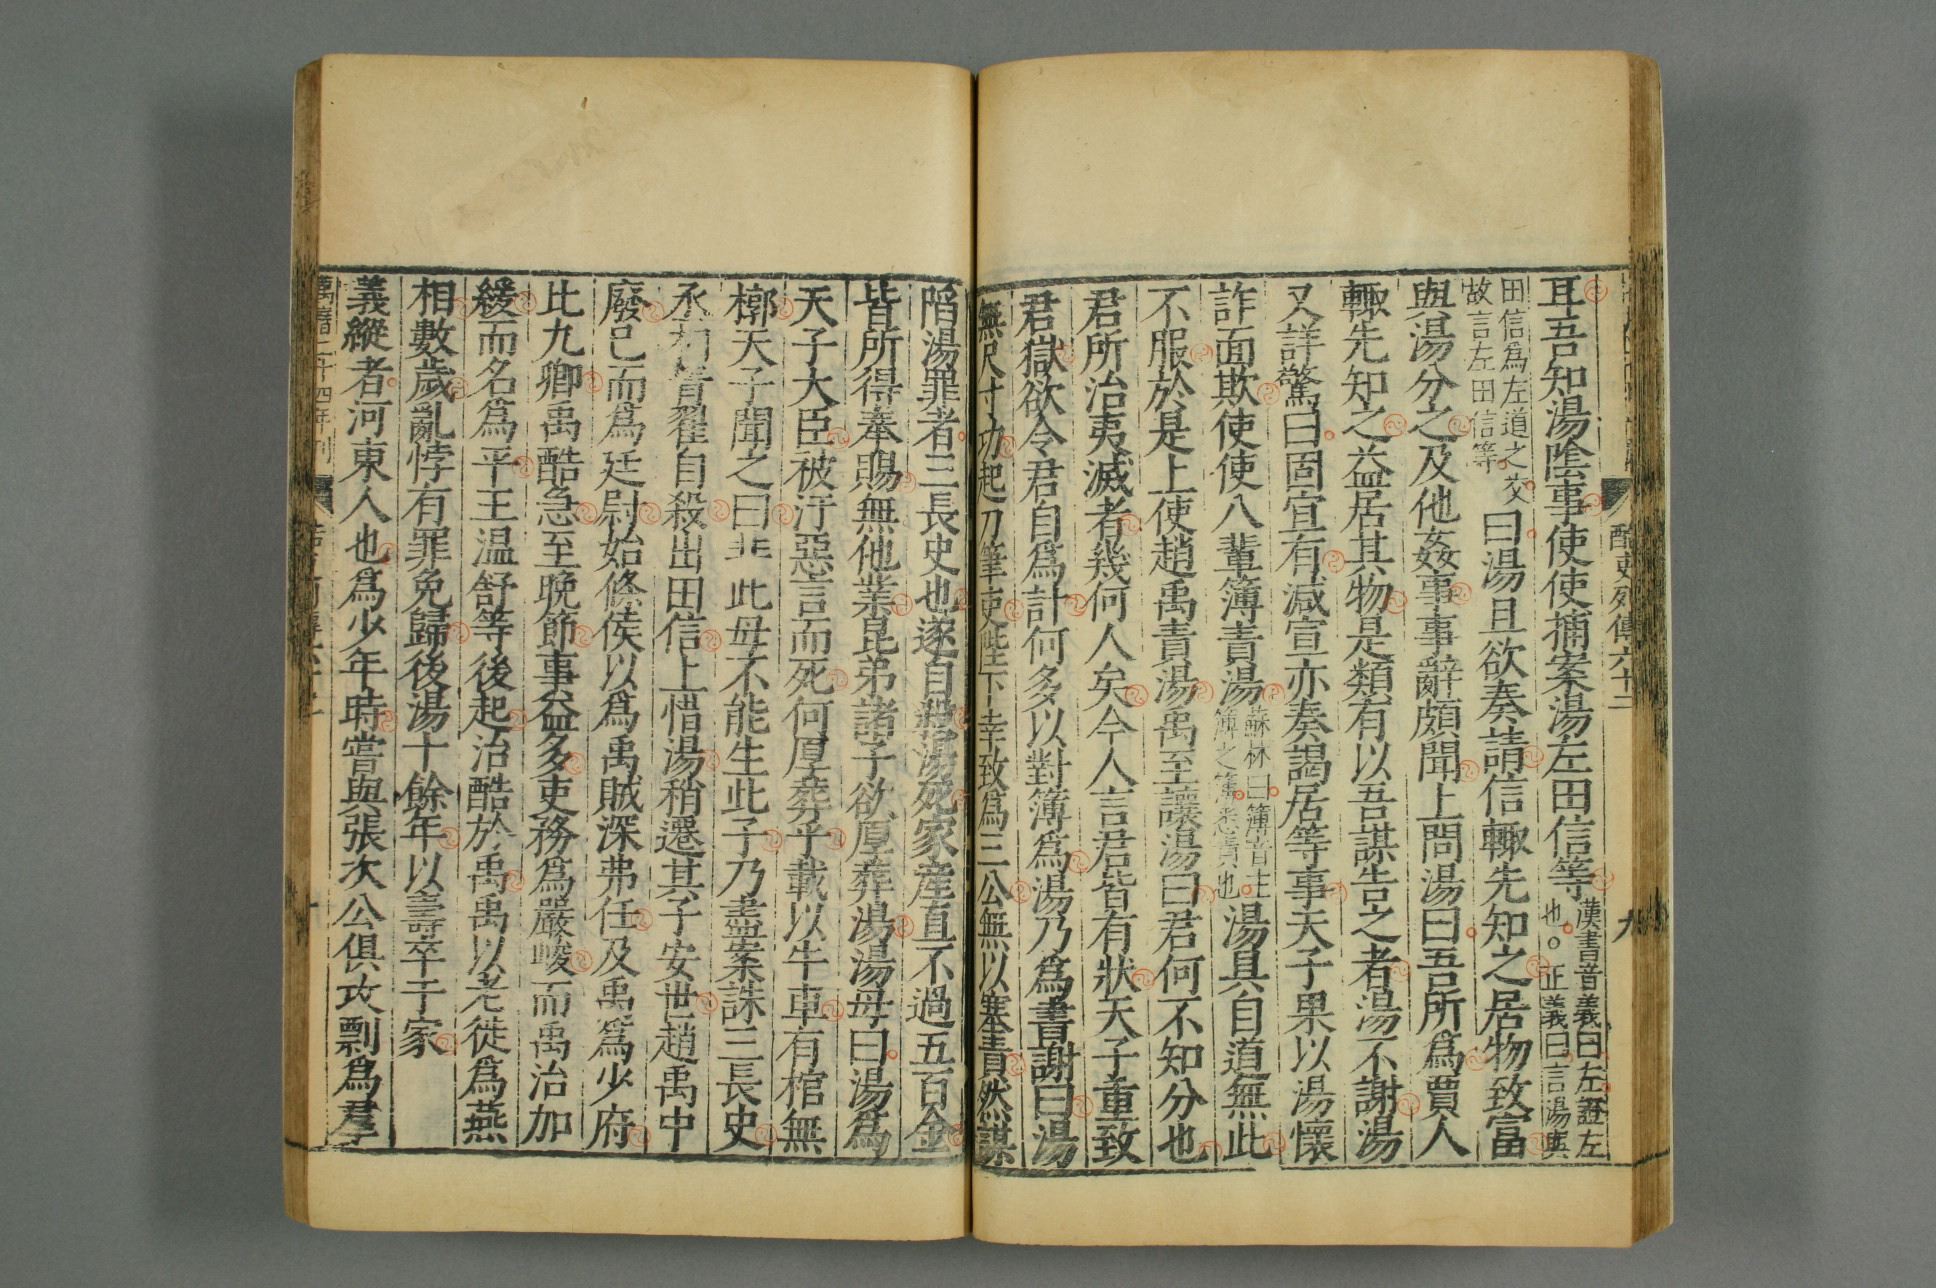 酷吏列傳六十二
九
耳吾知湯陰事使使捕案湯左田信等漢書音義曰左證左也○正義曰言湯與
田信爲左道之交故言左田信等曰湯且欲奏請信輒先知之居物致富
與湯分之及他姦事事辭頗聞上問湯曰吾所爲賈人
輒先知之益居其物是類有以吾謀告之者湯不謝湯
又詳驚曰固宜有減宣亦奏謁居等事天子果以湯懷
詐面欺使使八輩簿責湯蘇林曰簿音主簿之簿悉責也湯具自道無此
不服於是上使趙禹責湯禹至讓湯曰君何不知分也
君所治夷滅者幾何人矣今人言君皆有狀天子重致
君獄欲令君自爲計何多以對簿爲湯乃爲書謝曰湯
無尺寸功起刀筆吏陛下幸致爲三公無以塞責然謀
陷湯罪者三長史也遂自殺湯死家產直不過五百金
皆所得奉賜無他業昆弟諸子欲厚葬湯湯母曰湯爲
天子大臣被汙惡言而死何厚葬乎載以牛車有棺無
槨天子聞之曰非此母不能生此子乃盡案誅三長史
丞相青翟自殺出田信上惜湯稍遷其子安世趙禹中
廢已而爲廷尉始條侯以爲禹賊深弗任及禹爲少府
比九卿禹酷急至晚節事益多吏務爲嚴峻而禹治加
緩而名爲平王温舒等後起治酷於禹禹以老徙爲燕
相數歲亂悖有罪免歸後湯十餘年以壽卒于家
義縱者河東人也爲少年時嘗與張次公俱攻剽爲羣
萬曆二十四年刊
十